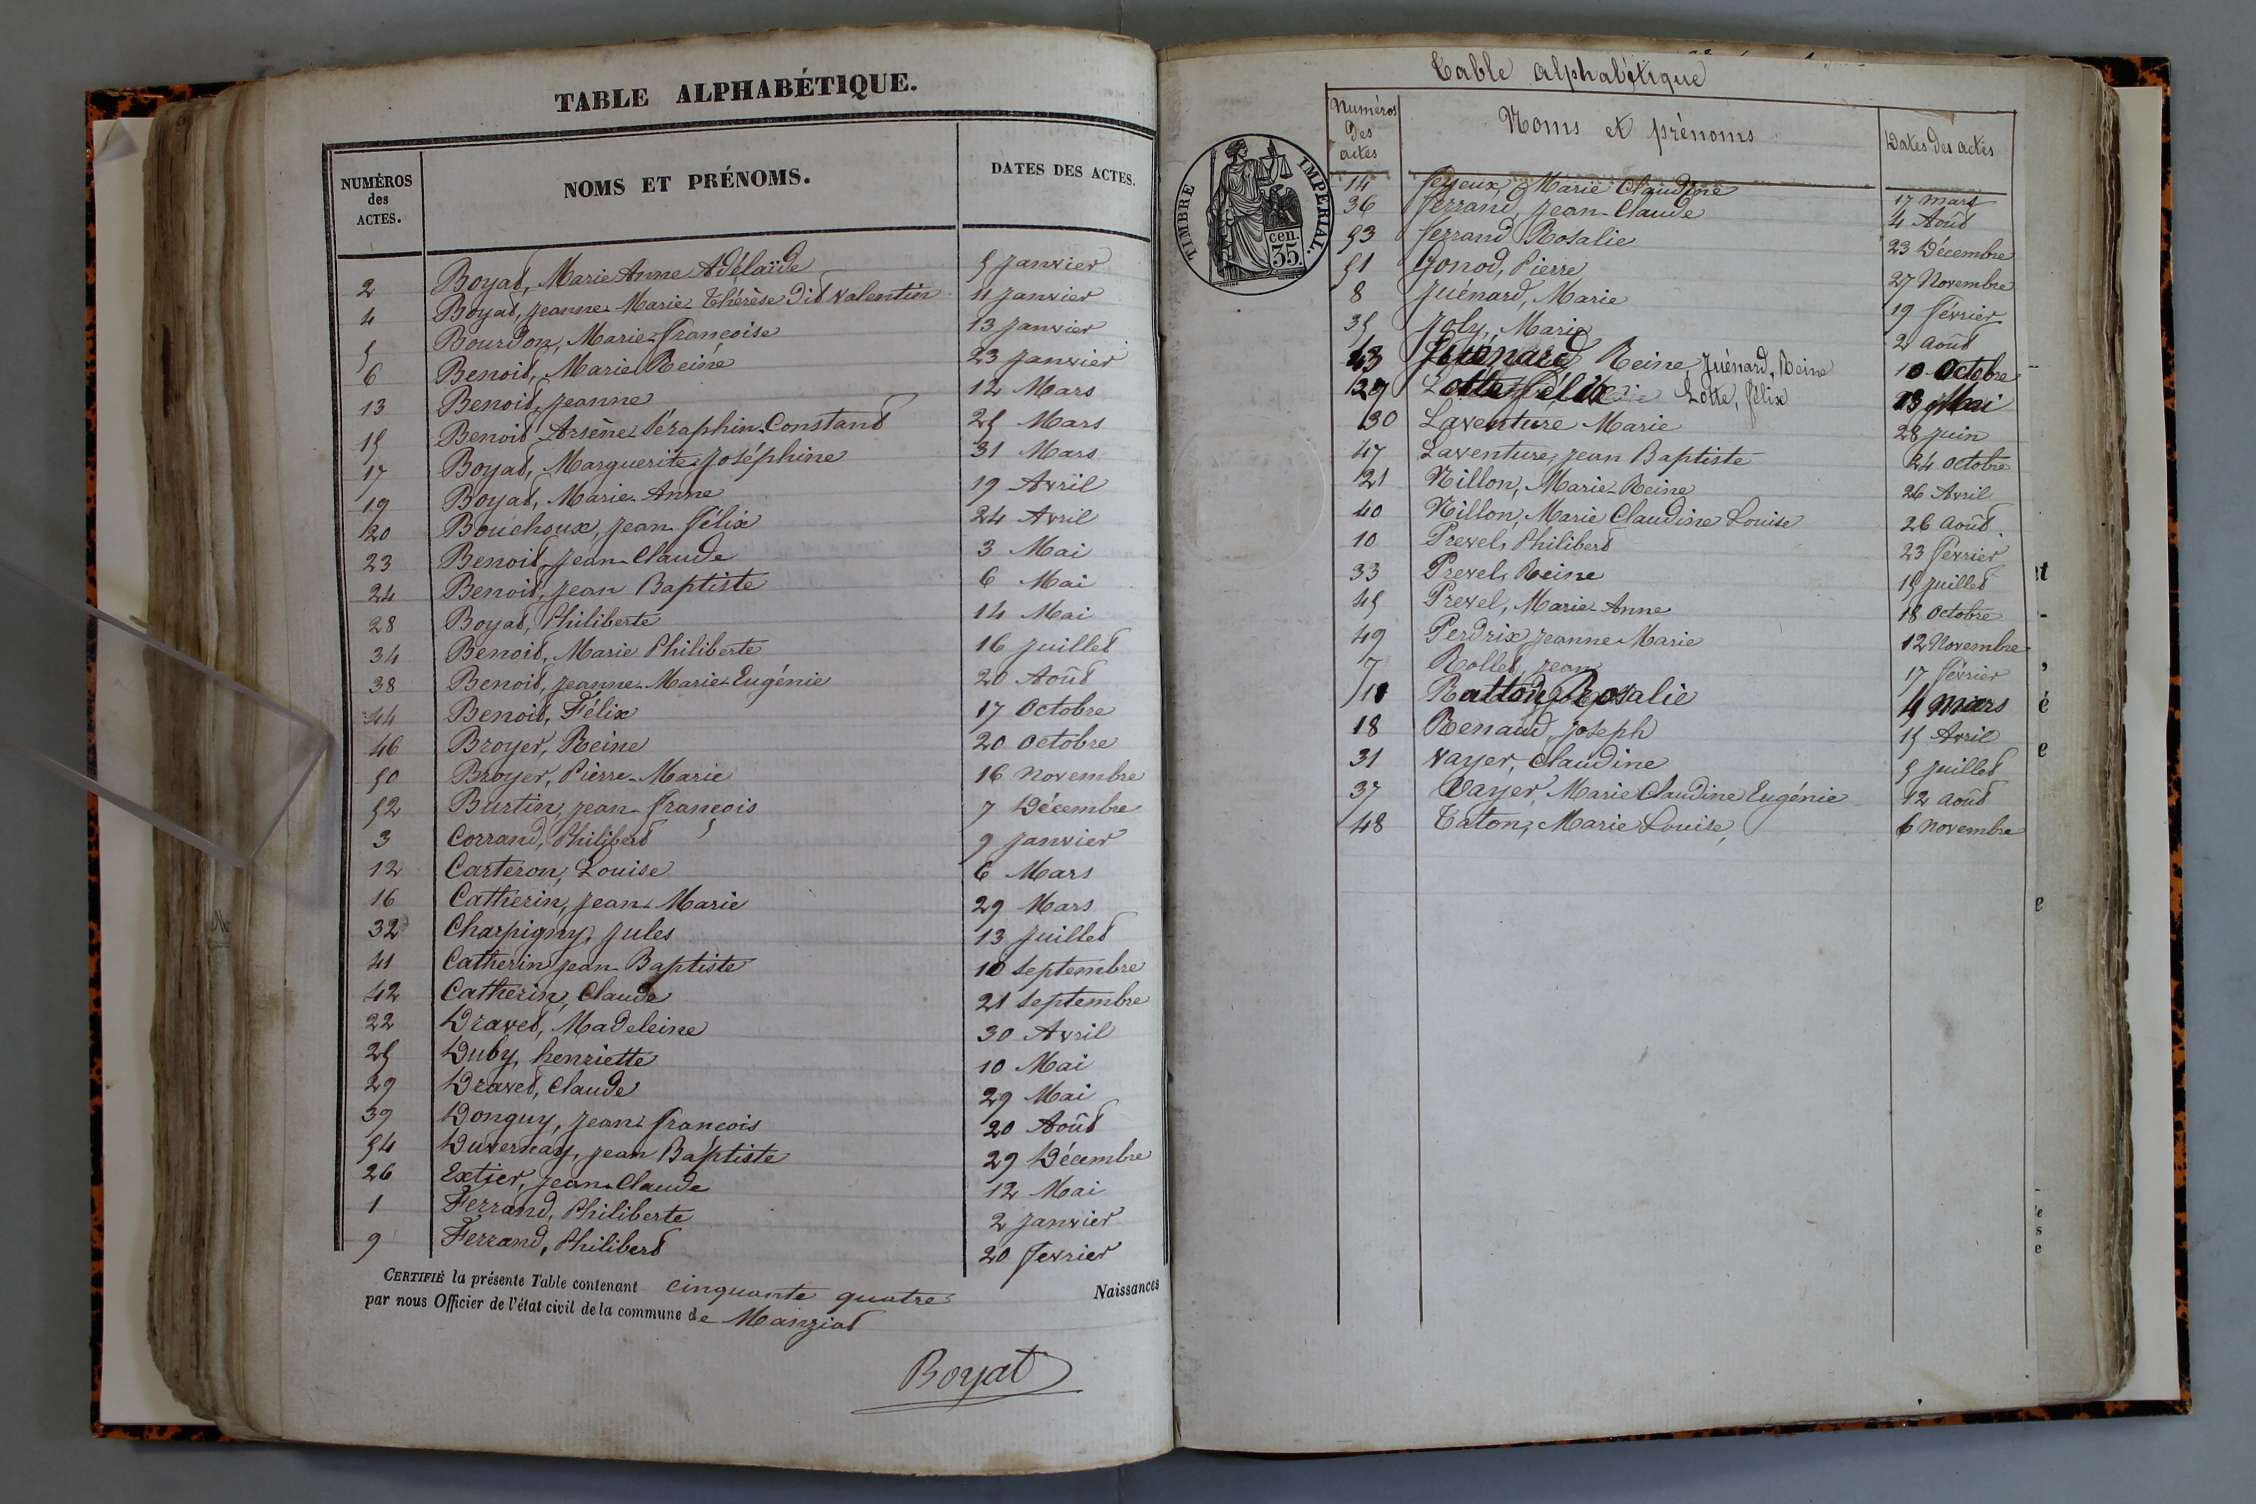 TABLE ALPHABÉTIQUE.
NUMÉROS des ACTES. NOMS ET PRÉNOMS. DATES DES ACTES.
2 Boyat, Marie Anne Adélaïde 5 Janvier
4 Boyat, Jeanne-Marie Thérèse dit Valentin 11 Janvier
5 Bourdon, Marie-françoise 13 Janvier
6 Benoit, Marie Reine 23 Janvier
13 Benoit, Jeanne 12 Mars
15 Benoit Arsène Séraphin Constant 25 Mars
17 Boyat, Marguerite Joséphine 31 Mars
19 Boyat, Marie-Anne 19 Avril
20 Bouchoux, Jean félix 24 Avril
23 Benoit Jean-Claude 3 Mai
24 Benoit, Jean Baptiste 6 Mai
28 Boyat, Philiberte 14 Mai
34 Benoit, Marie Philiberte 16 Juillet
38 Benoit, Jeanne-Marie-Eugénie 20 Août
44 Benoit, Félix 17 Octobre
46 Broyer, Reine 20 Octobre
50 Broyer, Pierre-Marie 16 Novembre
52 Burtin, Jean-françois 7 Décembre
3 Corrand, Philibert 9 Janvier
12 Carteron, Louise 6 Mars
16 Catherin, Jean-Marie 29 Mars
32 Charpigny, Jules 13 Juillet
41 Catherin Jean-Baptiste 10 Septembre
42 Catherin, Claude 21 Septembre
22 Dravet, Madeleine 30 Avril
25 Duby, henriette 10 Mai
29 Dravet, Claude 29 Mai
39 Donguy, Jean-françois 20 Août
54 Duvernay, Jean Baptiste 29 Décembre
26 Extier, Jean-Claude 12 Mai
1 Ferrand, Philiberte 2 Janvier
9 Ferrand, Philibert 20 fevrier
CERTIFIÉ la présente Table contenant cinquante quatre Naissances
par nous Officier de l'état civil de la commune de Manziat
Boyat
Table alphabétique
TIMBRE IMPÉRIAL.
35 cen.
Numéros des actes Noms et prénoms Dates des actes
14 feyeux, Marie Claudine 17 mars
36 ferrand, Jean-Claude 4 Août
53 ferrand Rosalie 23 Décembre
51 Gonod, Pierre 27 Novembre
8 Guénard, Marie 19 février
35 Joly, Marie 2 août
43 Guénard, Reine Guénard, Reine 10 Octobre
27 Lotte félix Lotte, félix 13 Mai
30 Laventure Marie 28 Juin
47 Laventure, Jean Baptiste 24 octobre
21 Nillon, Marie-Reine 26 Avril
40 Nillon, Marie Claudine Louise 26 août
10 Prevel, Philibert 23 février
33 Prevel, Reine 15 Juillet
45 Prevel, Marie-Anne 18 Octobre
49 Perdrix Jeanne-Marie 12 Novembre
7 Rollet, Jean 17 février
11 Ratton, Rosalie 4 mars
18 Renaud, Joseph 15 Avril
31 Vayer, Claudine 5 Juillet
37 Vayer, Marie Claudine Eugénie 12 août
48 Taton, Marie Louise, 6 Novembre